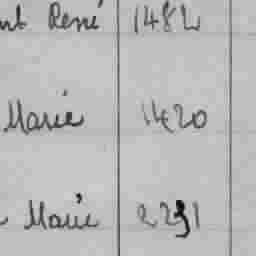 René 1482
Marie 1420
Marie 2291